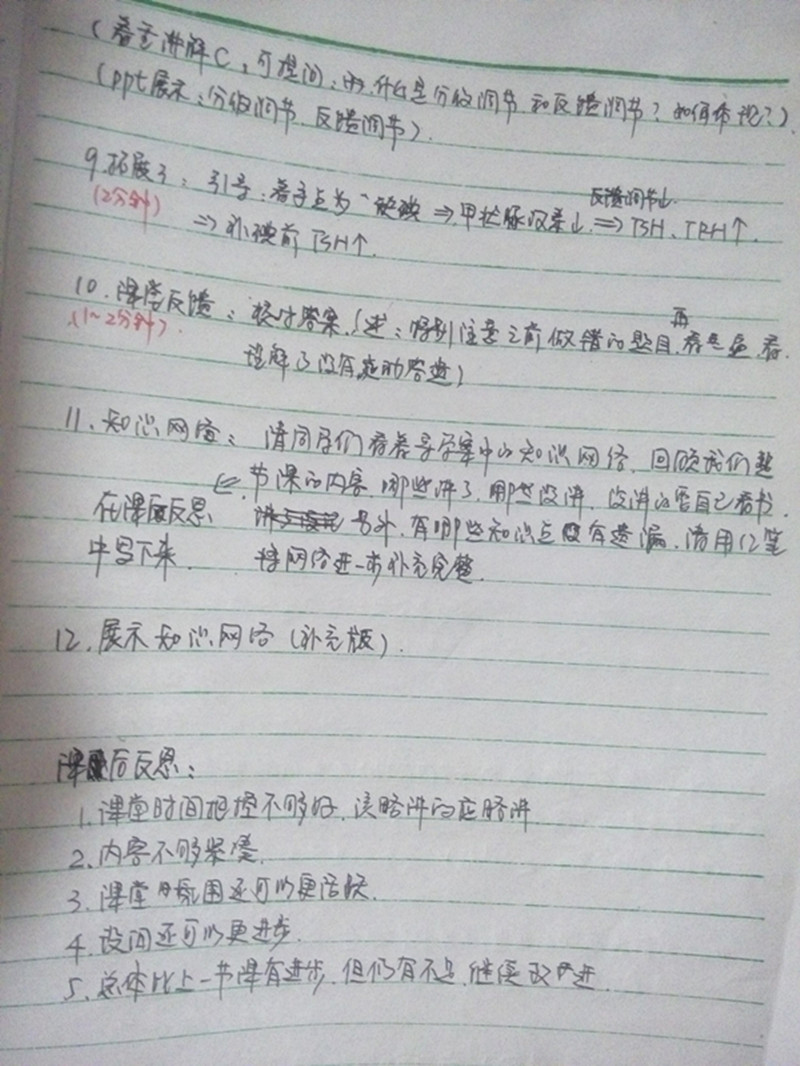 (着重讲解C,可提问:什么是分级调节和反馈调节?如何体现?)
(ppt展示:分级调节、反馈调节).
9.拓展3:引导:着手点为"缺碘⇒甲状腺激素↓ 反馈调节↓ ⇒TSH、TRH↑.
(2分钟) ⇒补碘前TSH↑.
10.课堂反馈:核对答案.(述:特别注意之前做错的题目,再看一遍,看
(1~2分钟). 理解了没有
11.知识网络:请同学们看着导学案中的知识网络,回顾我们整
节课的内容,哪些讲了,哪些没讲,没讲的要自己看书.
在课后反思 另外,有哪些知识点没有遗漏,请用红笔
中写下来 将网络进一步补充完整.
12.展示知识网络(补充版).
课后反思:
1.课堂时间把握不够好,该略讲的应略讲
2.内容不够紧凑.
3.课堂氛围还可以更活跃.
4.设问还可以更进步.
5.总体比上一节课有进步,但仍有不足,继续改进.